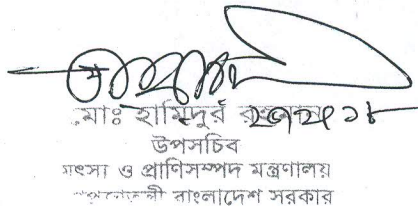 মোঃ হামিদুর রহমান
উপসচিব
মৎস্য ও প্রাণিসম্পদ মন্ত্রণালয়
গণপ্রজাতন্ত্রী বাংলাদেশ সরকার